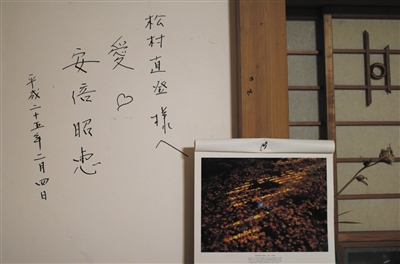 松村直登様へ
愛♡
安倍昭恵
平成二十五年二月四日